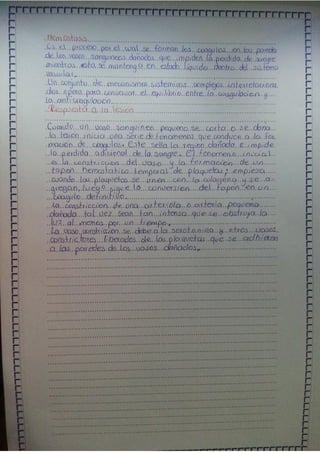 Hemostasia
Es el proceso por el cual se forman los coagulos en las paredes
de los vasos sanguineos dañados que impiden la perdida de sangre
mientras esta se mantenga en estado liquido dentro del sistema
vascular.
Un conjunto de mecanismos sistemicos complejos interrelaciona
dos opera para conservar el equilibrio entre la coagulacion y
la anticoagulacion.
Respuesta a la lesion
Cuando un vaso sanguineo pequeño se corta o se dana
la lesion inicia una serie de fenomenos que conduce a la for
macion de coagulos. Este sella la region dañada e impide
la perdida adicional de la sangre. El fenomeno inicial
es la constriccion del vaso y la formacion de un
tapon hemostatico temporal de plaquetas y empieza
cuando las plaquetas se unen con la colagena y se a
gregan, luego sigue la conversion del tapon en un
coagulo definitivo.
La constriccion de una arteriola o arteria pequeña
dañada tal vez sean tan intensa que se obstruya la
luz al menos por un tiempo.
La vasoconstriccion se debe a la serotonina y otros vasos
constrictores liberados de las plaquetas que se adhieren
a las paredes de los vasos dañados.